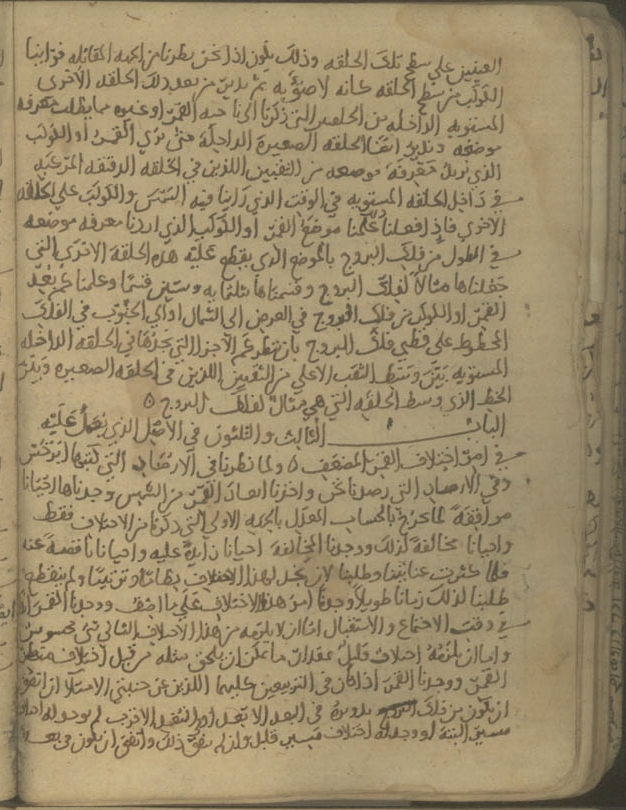 العينين على سطح تلك الحلقه وذلك يكون اذا نحن نظرنا من الجهه المقابله فراينا
الكوكب من سطح الحلقه كانه لاصق به ثم ندير من بعد ذلك الحلقه الاخرى
المستويه الداخله من الحلقتين التي ذكرنا الى ناحيه القمر او غيره مما يطلب معرفه
موضعه وندير ايضا الحلقه الصغيرة الداخلة حتى نرى القمر او الكوكب
الذي نريد معرفة موضعه من الثقبين اللذين في الحلقه الدقيقه المركبه
في داخل الحلقه المستويه في الوقت الذي راينا فيه الشمس والكوكب على الحلقه
الاخرى فاذا فعلنا ذلك علمنا موضع القمر او الكوكب الذي اردنا معرفه موضعه
في الطول من فلك البروج بالموضع الذي يقطع عليه هذه الحلقه الاخرى التي
جعلناها مثالا لفلك البروج وقسمناها بثلثمايه وستين قسما وعلمنا كم بعد
القمر او الكوكب من فلك البروج في العرض الى الشمال او الى الجنوب في الفلك
المخطوط على قطبي فلك البروج بان ننظر كم الاجزا التي نجدها في الحلقه الداخله
المستويه بين وسط الثقب الاعلى من الثقبين اللذين في الحلقه الصغيره وبين
الخط الذي وسط الحلقه التي هي مثال لفلك البروج ه
الباب الثالث والثلثون في الاصل الذي يعمل عليه
في امر اختلاف القمر المضعف ه ولما نظرنا في الارصاد التي كتبها ابرخس
وفي الارصاد التي رصدنا نحن واخذنا ابعاد القمر من الشمس وجدناها احيانا
موافقة لما يخرج بالحساب المعدل بالجهه الاولى التي ذكرنا من الاختلاف فقط
واحيانا مخالفة لذلك ووجدنا المخالفه احيانا زايدة عليه واحيانا ناقصة عنه
فلما كثرت عنايتنا وطلبنا لان نجد لهذا الاختلاف نظاما وترتيبا ولم ينقطع
طلبنا لذلك زمانا طويلا وجدنا امر هذا الاختلاف على ما اصف ووجدنا القمر اما
في وقت الاجتماع والاستقبال اما ان لا يلزمه من هذا الاختلاف الثاني شي محسوس
واما ان يلزمه اختلاف قليل بمقدار ما يمكن ان يلحق مثله من قبل اختلاف منظر
القمر ووجدنا القمر اذا كان في التربيعين كليهما اللذين عن جنبتي الامتلا ان اتفق
ان يكون من فلك تدويره في البعد الابعد او البعد الاقرب لم يوجد له اختلاف
مسير البتة او وجد له اختلاف مسير قليل وان لم يتفق ذلك واتفق ان يكون في بعد